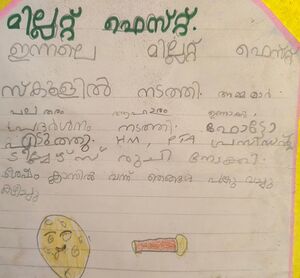 മില്ലറ്റ് ഫെസ്റ്റ്.
ഇന്നലെ മില്ലറ്റ് ഫെസ്റ്റ്
സ്കൂളിൽ നടത്തി. അമ്മമാർ
പല തരം ആഹാരം ഉണ്ടാക്കി
പ്രദർശനം നടത്തി. ഫോട്ടോ
എടുത്തു. HM, PTA പ്രസിഡന്റ്
ടീച്ചേഴ്സ് രുചി നോക്കി.
ശേഷം ക്ലാസിൽ വന്ന് ഞങ്ങൾ പങ്കു വച്ചു
കഴിച്ചു